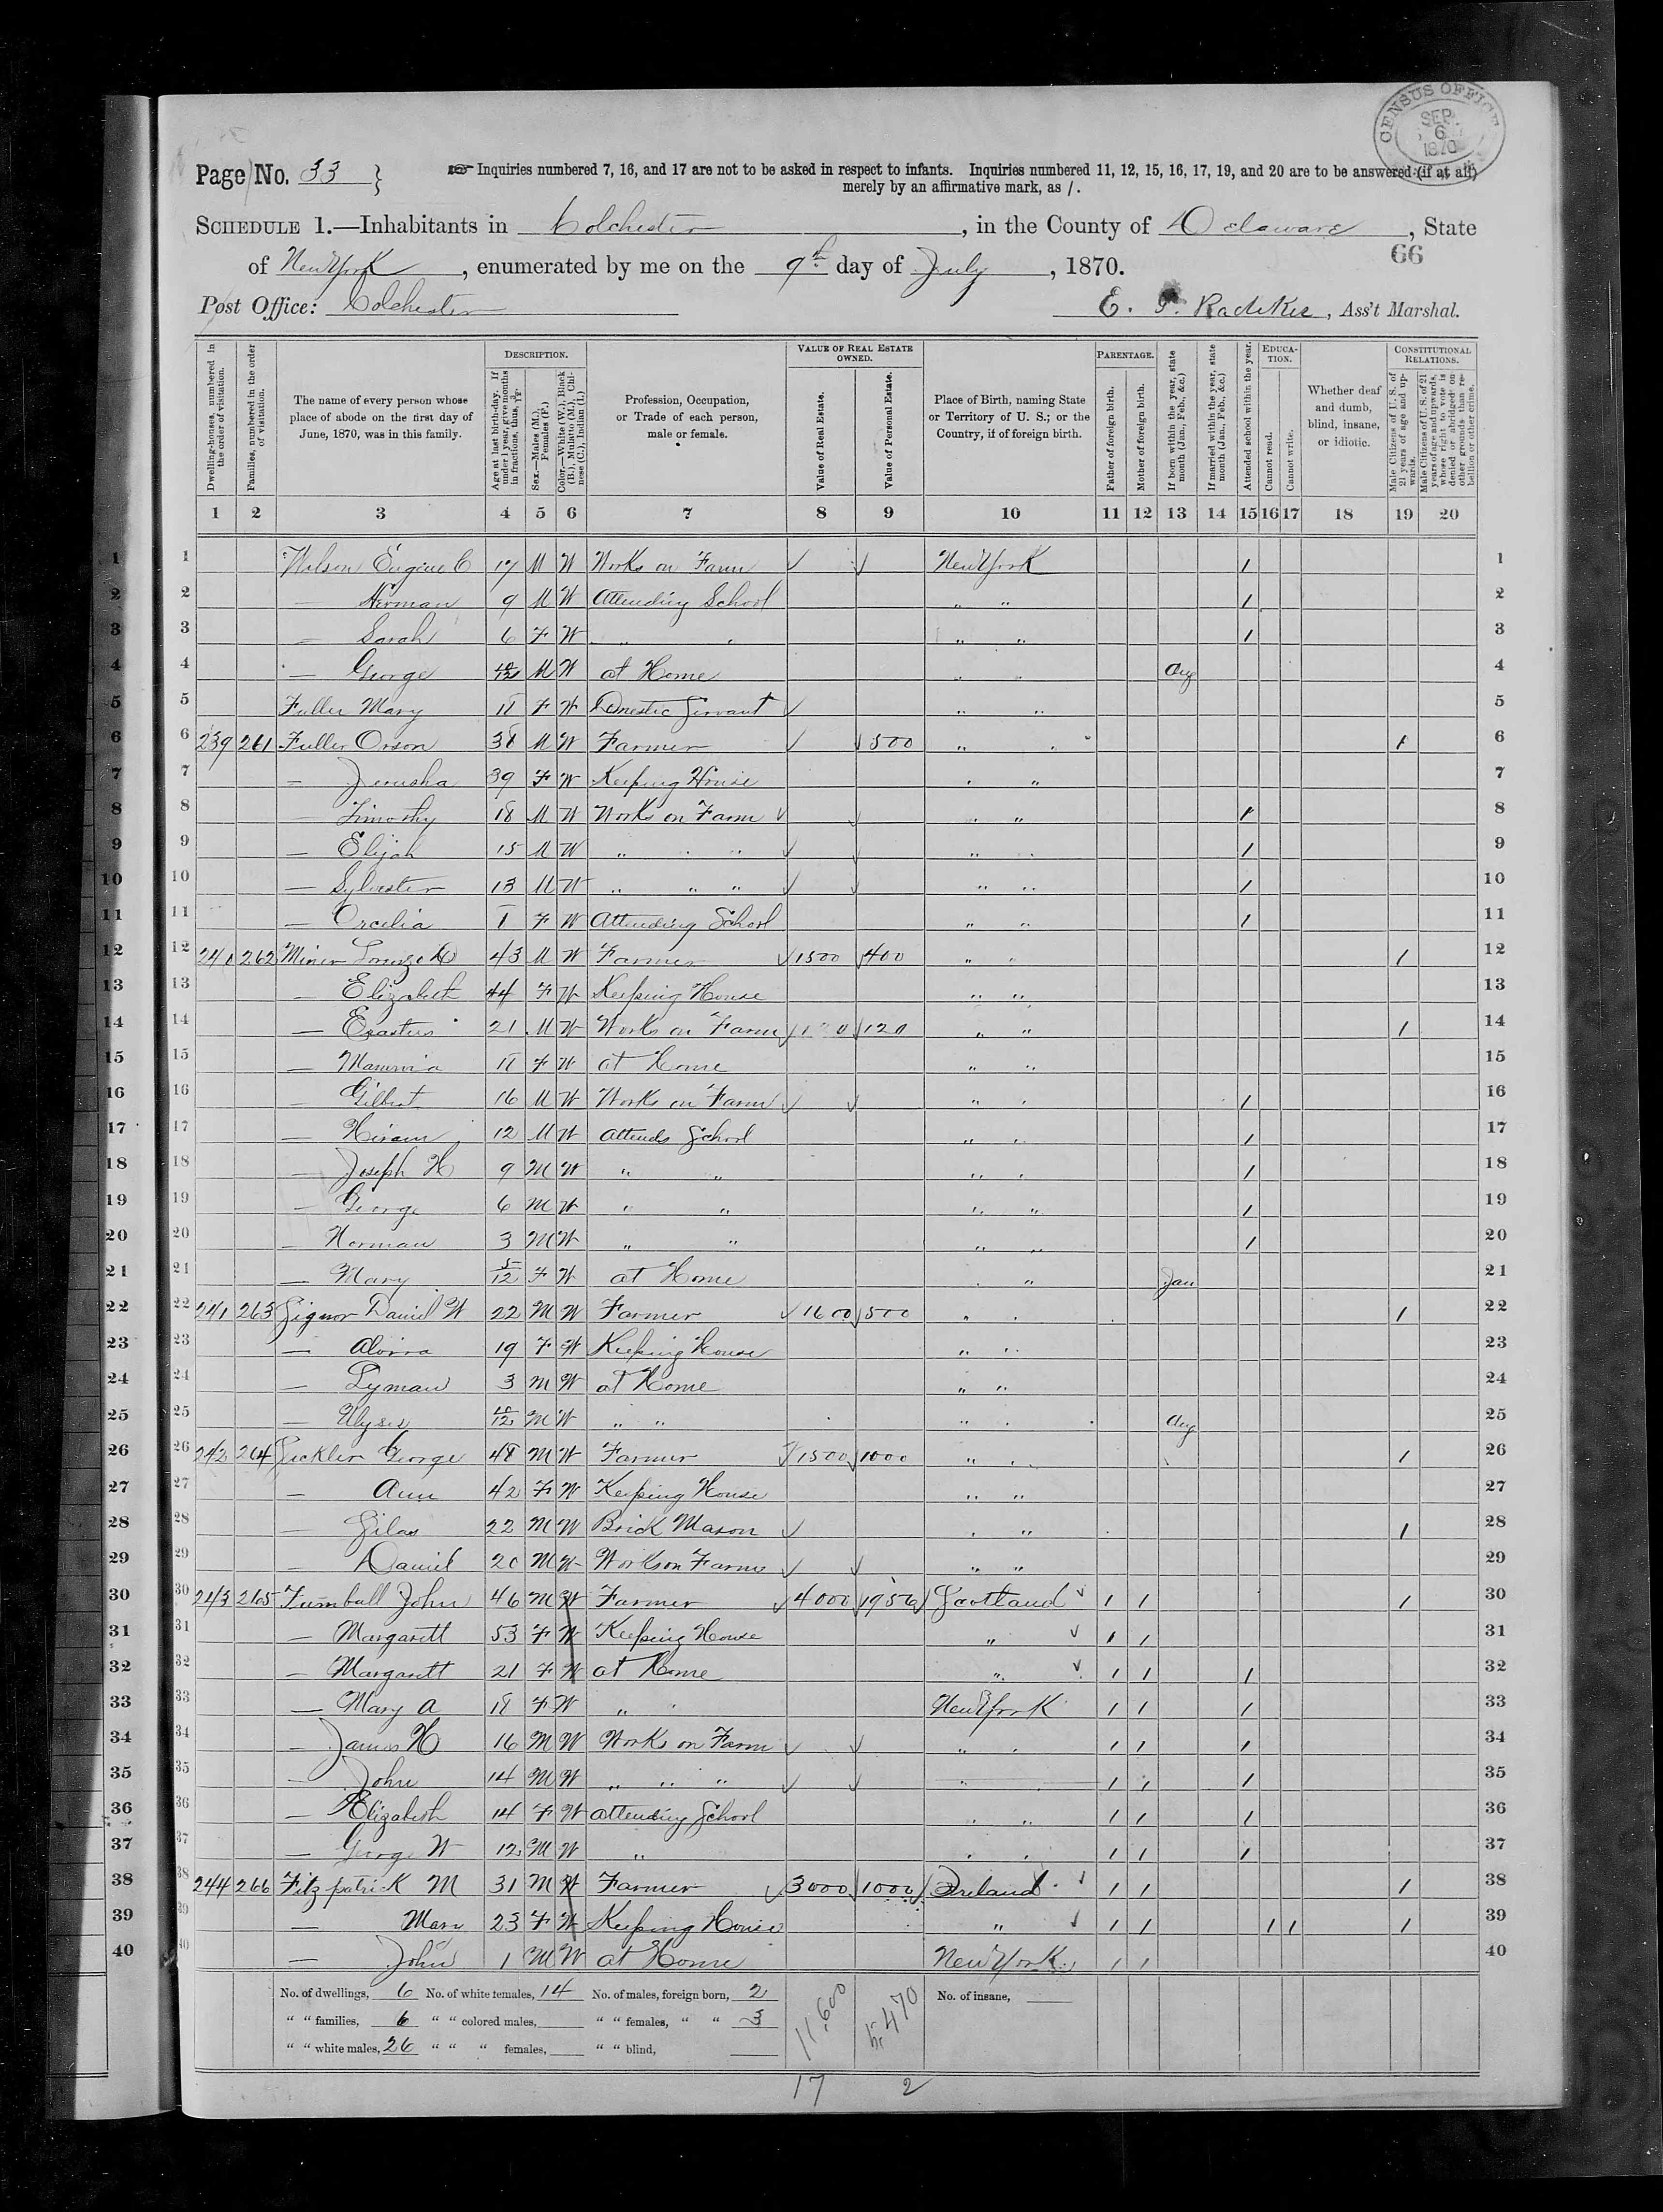 CENSUS OFFICE
SEP.
6
1870
Page No. 33 }
Inquiries numbered 7, 16, and 17 are not to be asked in respect to infants. Inquiries numbered 11, 12, 15, 16, 17, 19, and 20 are to be answered (if at all)
merely by an affirmative mark, as /.
SCHEDULE 1.—Inhabitants in Colchester, in the County of Delaware, State
66
of New York, enumerated by me on the 9th day of July, 1870.
Post Office: Colchester E. Radeker, Ass't Marshal.
Dwelling-houses, numbered in the order of visitation.
Families, numbered in the order of visitation.
The name of every person whose place of abode on the first day of June, 1870, was in this family.
DESCRIPTION.
Age at last birth-day. If under 1 year, give months in fractions, thus, 3/12.
Sex.—Males (M.), Females (F.)
Color.—White (W.), Black (B.), Mulatto (M.), Chinese (C.), Indian (I.)
Profession, Occupation, or Trade of each person, male or female.
VALUE OF REAL ESTATE OWNED.
Value of Real Estate.
Value of Personal Estate.
Place of Birth, naming State or Territory of U. S.; or the Country, if of foreign birth.
PARENTAGE.
Father of foreign birth.
Mother of foreign birth.
If born within the year, state month (Jan., Feb., &c.)
If married within the year, state month (Jan., Feb., &c.)
Attended school within the year.
EDUCATION.
Cannot read.
Cannot write.
Whether deaf and dumb, blind, insane, or idiotic.
CONSTITUTIONAL RELATIONS.
Male Citizens of U. S. of 21 years of age and upwards.
Male Citizens of U. S. of 21 years of age and upwards, whose right to vote is denied or abridged on other grounds than rebellion or other crime.
1 2 3 4 5 6 7 8 9 10 11 12 13 14 15 16 17 18 19 20
1 Wilson Eugene C 17 M W Works on Farm New York / 1
2 — Herman 9 M W Attending School " " / 2
3 — Sarah 6 F W " " " " / 3
4 — George 10/12 M W at Home " " Aug 4
5 Fuller Mary 18 F W Domestic Servant " " 5
6 239 261 Fuller Orson 38 M W Farmer 500 " " / 6
7 — Jerusha 39 F W Keeping House " " 7
8 — Timothy 18 M W Works on Farm " " / 8
9 — Elijah 15 M W " " " " " / 9
10 — Sylvester 13 M W " " " " " / 10
11 — F W Attending School " " / 11
12 240 262 Miner Lorenzo D 43 M W Farmer 1500 400 " " / 12
13 — Elizabeth 44 F W Keeping House " " 13
14 — Erastus 21 M W Works on Farm 120 " " / 14
15 — F W at Home " " 15
16 — Gilbert 16 M W Works on Farm " " / 16
17 — Hiram 12 M W Attends School " " / 17
18 — Joseph H 9 M W " " " " / 18
19 — George 6 M W " " " " / 19
20 — Herman 3 M W " " " " / 20
21 — Mary 5/12 F W at Home " " Jan 21
22 241 263 Signor Daniel W 22 M W Farmer 1600 500 " " / 22
23 — 19 F W Keeping House " " 23
24 — Lyman 3 M W at Home " " 24
25 — Ulyses 10/12 M W " " " " Aug 25
26 242 264 George 48 M W Farmer 1500 1000 " " / 26
27 — Ann 42 F W Keeping House " " 27
28 — Silas 22 M W Brick Mason " " / 28
29 — Daniel 20 M W Works on Farm " " 29
30 243 265 Turnball John 46 M W Farmer 4000 1950 Scotland / / / 30
31 — Margarett 53 F W Keeping House " / / 31
32 — Margarett 21 F W at Home " / / / 32
33 — Mary A 18 F W " " New York / / / 33
34 — James H 16 M W Works on Farm " " / / / 34
35 — John 14 M W " " " " " / / / 35
36 — Elizabeth 14 F W attending School " " / / / 36
37 — George W 12 M W " " " / / / 37
38 244 266 Fitzpatrick M 31 M W Farmer 3000 1000 Ireland / / / 38
39 — Mary 23 F W Keeping House " / / / / / 39
40 — John 1 M W at Home New York / / 40
No. of dwellings, 6 No. of white females, 14 No. of males, foreign born, 2 11,600 5,470 No. of insane,
" " families, 6 " " colored males, " " females, " " 3
" " white males, 26 " " " females, " " blind,
17 2